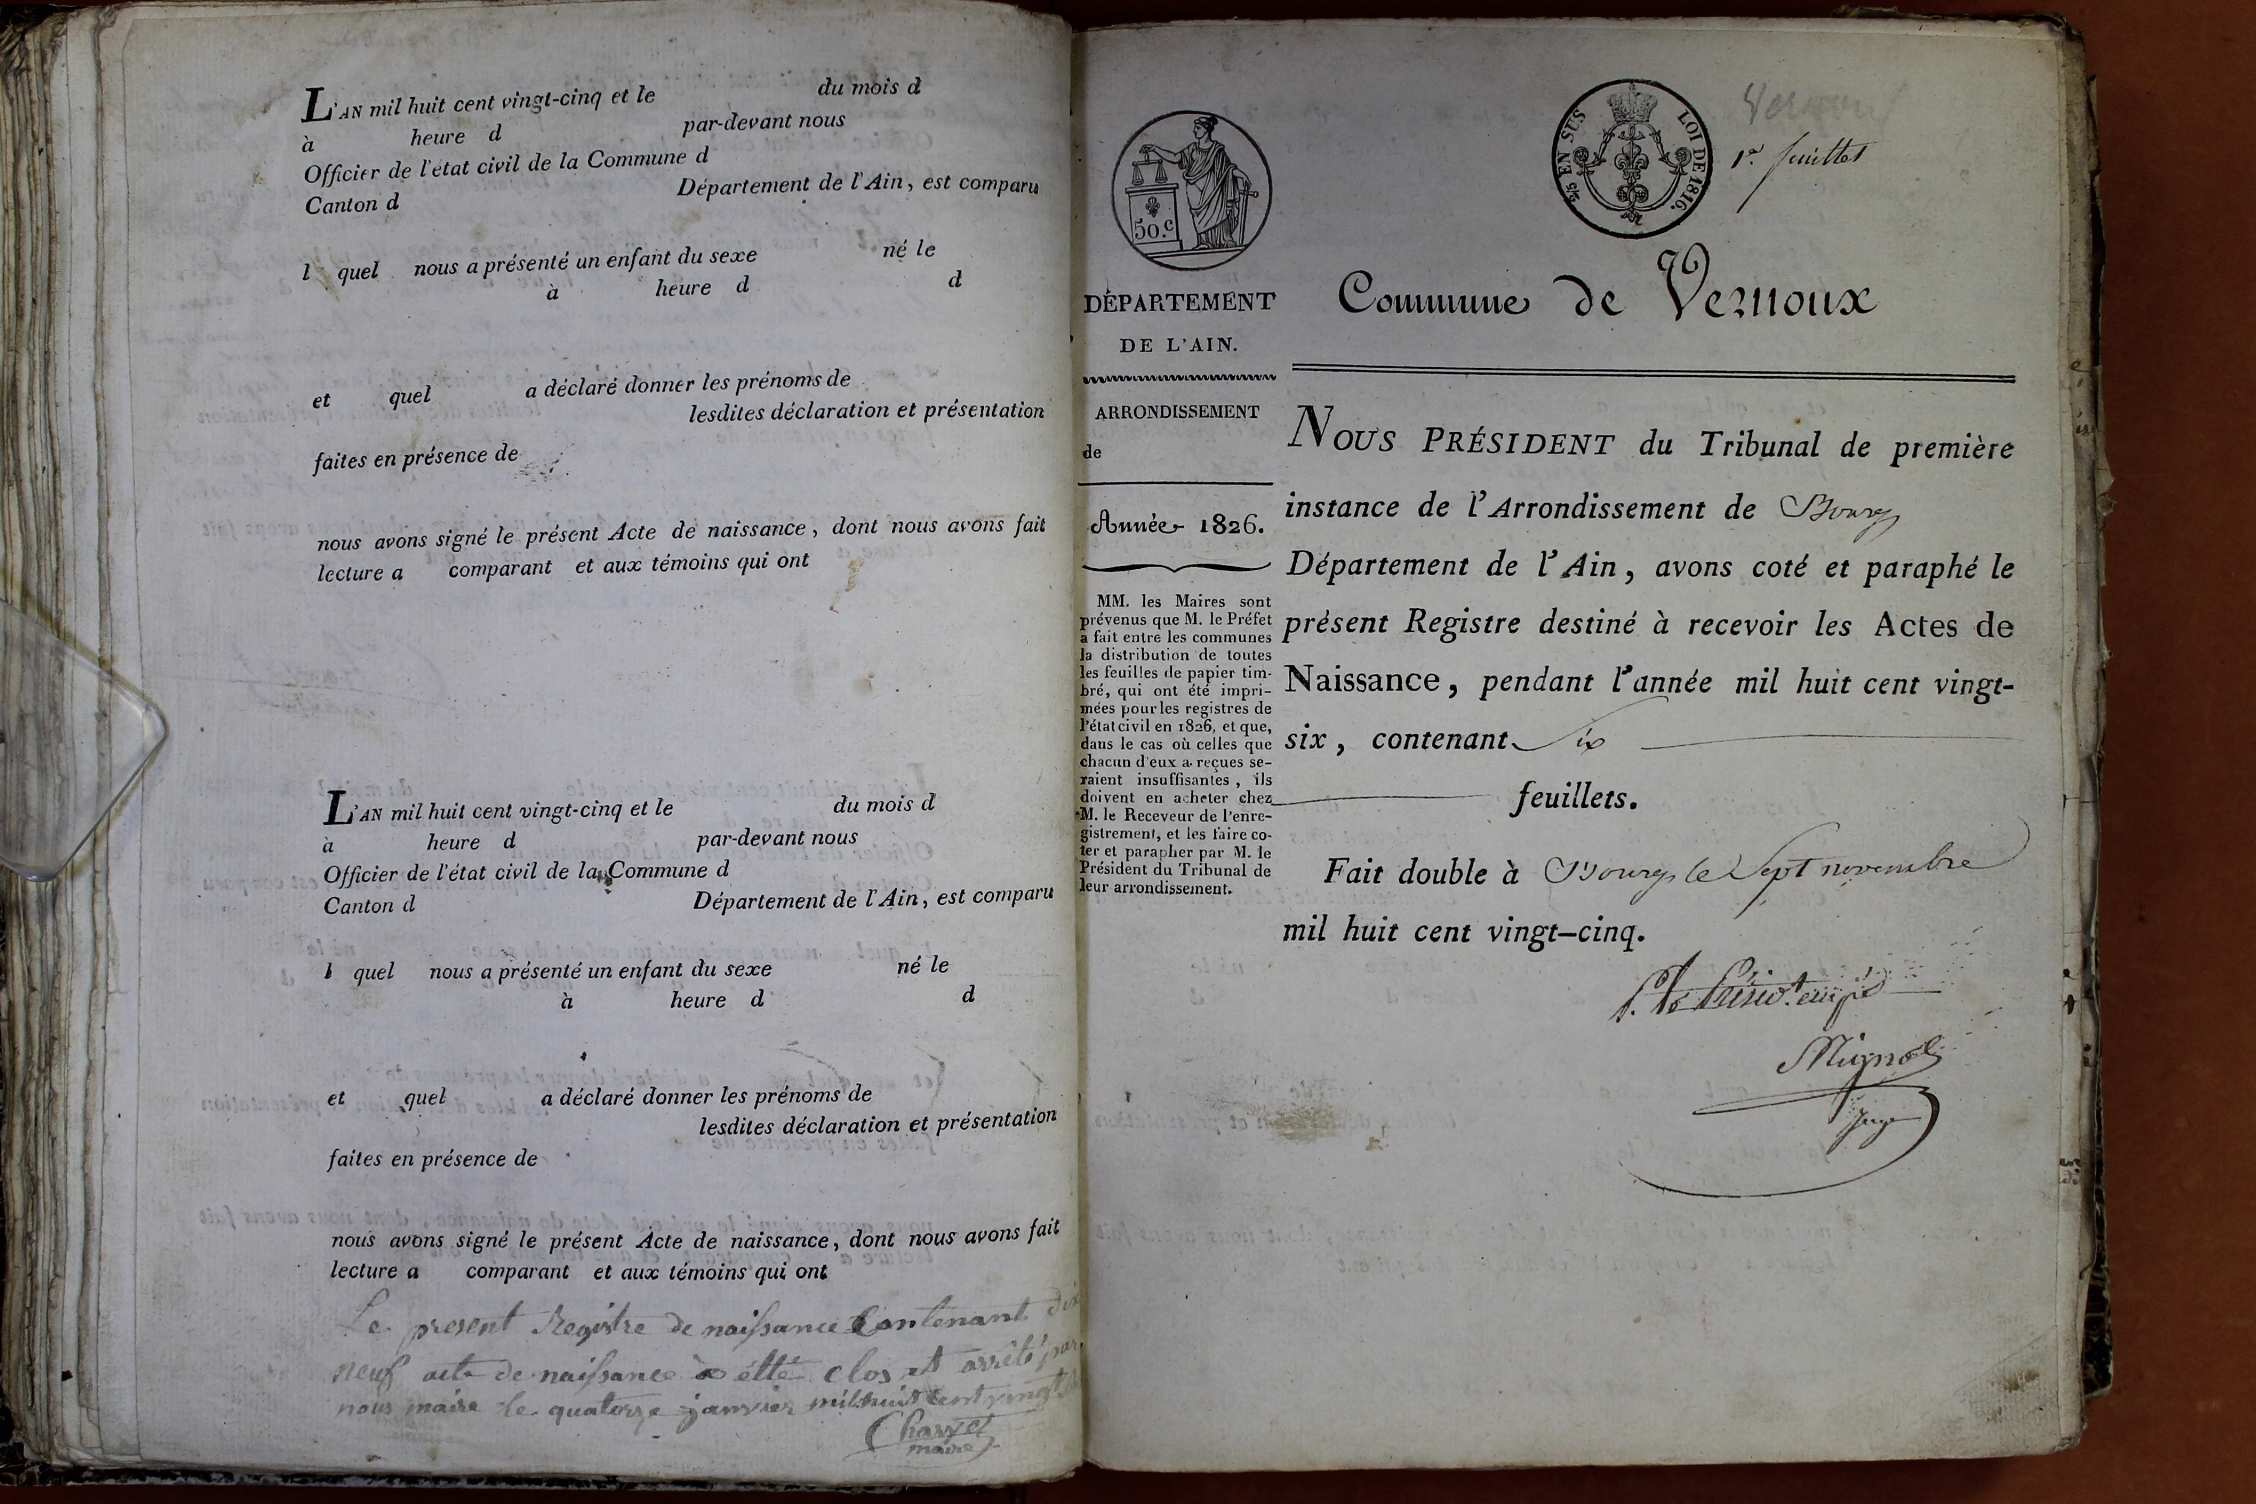 L'AN mil huit cent vingt-cinq et le du mois d
à heure d par-devant nous
Officier de l'état civil de la Commune d
Canton d Département de l'Ain, est comparu
l quel nous a présenté un enfant du sexe né le
à heure d d
et quel a déclaré donner les prénoms de
lesdites déclaration et présentation
faites en présence de
nous avons signé le présent Acte de naissance, dont nous avons fait
lecture a comparant et aux témoins qui ont
L'AN mil huit cent vingt-cinq et le du mois d
à heure d par-devant nous
Officier de l'état civil de la Commune d
Canton d Département de l'Ain, est comparu
l quel nous a présenté un enfant du sexe né le
à heure d d
et quel a déclaré donner les prénoms de
lesdites déclaration et présentation
faites en présence de
nous avons signé le présent Acte de naissance, dont nous avons fait
lecture a comparant et aux témoins qui ont
Le present Registre de naissance Contenant dix
neuf acte de naissance a étté clos et arrêté par
nous maire le quatorze janvier mil huit cent vingt
Charvet
maire
50.c
2/5 EN SUS LOI DE 1816.
1er feuillet
DÉPARTEMENT
DE L'AIN.
ARRONDISSEMENT
de
Année 1826.
MM. les Maires sont
prévenus que M. le Préfet
a fait entre les communes
la distribution de toutes
les feuilles de papier tim-
bré, qui ont été impri-
mées pour les registres de
l'état civil en 1826, et que,
dans le cas où celles que
chacun d'eux a reçues se-
raient insuffisantes, ils
doivent en acheter chez
M. le Receveur de l'enre-
gistrement, et les faire co-
ter et parapher par M. le
Président du Tribunal de
leur arrondissement.
Commune de Vernoux
NOUS PRÉSIDENT du Tribunal de première
instance de l'Arrondissement de Bourg
Département de l'Ain, avons coté et paraphé le
présent Registre destiné à recevoir les Actes de
Naissance, pendant l'année mil huit cent vingt-
six, contenant Six
feuillets.
Fait double à Bourg le Sept novembre
mil huit cent vingt-cinq.
P. le Présidt. empé
Juge